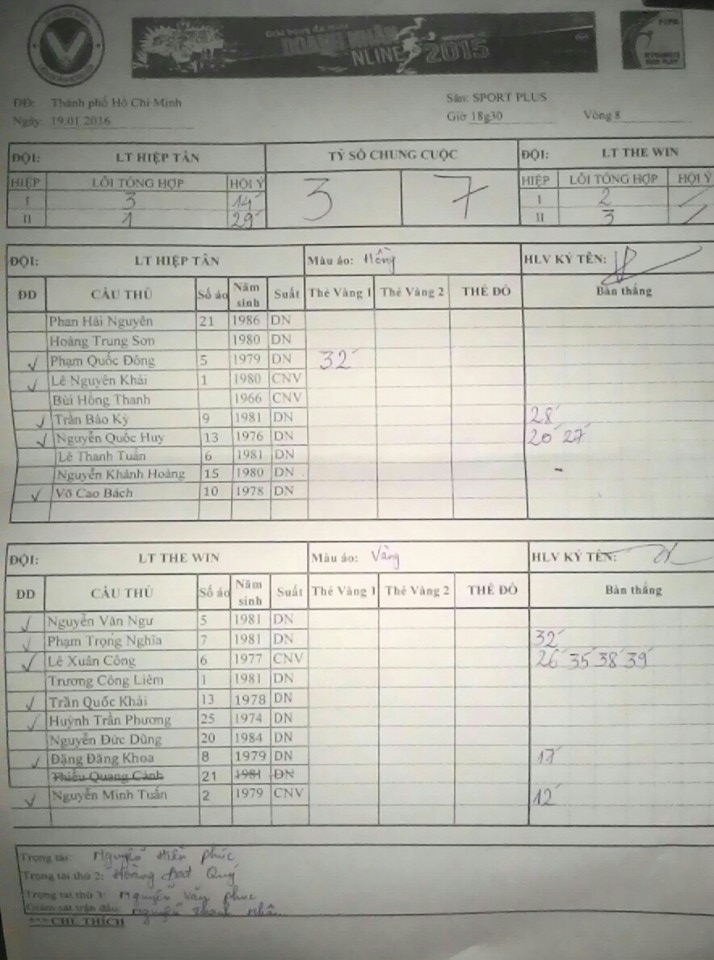 Giải bóng đá mini
DOANH NHÂN
NLINE 2015
ĐĐ: Thành phố Hồ Chí Minh Sân: SPORT PLUS
Ngày: 19.01 2016 Giờ 18g30 Vòng 8
ĐỘI: LT HIỆP TÂN TỶ SỐ CHUNG CUỘC ĐỘI: LT THE WIN
HIỆP LỖI TỔNG HỢP HỘI Ý 3 7 HIỆP LỖI TỔNG HỢP HỘI Ý
I 3 14' I 2 /
II 1 29' II 3 /
ĐỘI: LT HIỆP TÂN Màu áo: Hồng HLV KÝ TÊN:
ĐD CẦU THỦ Số áo Năm sinh Suất Thẻ Vàng 1 Thẻ Vàng 2 THẺ ĐỎ Bàn thắng
Phan Hải Nguyên 21 1986 DN
Hoàng Trung Sơn 1980 DN
✓ Phạm Quốc Đông 5 1979 DN 32'
✓ Lê Nguyên Khải 1 1980 CNV
Bùi Hồng Thanh 1966 CNV
✓ Trần Bảo Kỳ 9 1981 DN 28'
✓ Nguyễn Quốc Huy 13 1976 DN 20' 27'
Lê Thanh Tuấn 6 1981 DN
Nguyễn Khánh Hoàng 15 1980 DN -
✓ Võ Cao Bách 10 1978 DN
ĐỘI: LT THE WIN Màu áo: Vàng HLV KÝ TÊN:
ĐD CẦU THỦ Số áo Năm sinh Suất Thẻ Vàng 1 Thẻ Vàng 2 THẺ ĐỎ Bàn thắng
✓ Nguyễn Văn Ngư 5 1981 DN
✓ Phạm Trọng Nghĩa 7 1981 DN 32'
✓ Lê Xuân Công 6 1977 CNV 26' 35' 38' 39'
Trương Công Liêm 1 1981 DN
✓ Trần Quốc Khải 13 1978 DN
✓ Huỳnh Trần Phương 25 1974 DN
Nguyễn Đức Dũng 20 1984 DN
✓ Đặng Đăng Khoa 8 1979 DN 17'
Thiều Quang Cảnh 21 1981 DN
✓ Nguyễn Minh Tuấn 2 1979 CNV 12'
Trọng tài: Nguyễn Hiền Phúc
Trọng tài thứ 2: Hoàng Đạt Quý
Trọng tài thứ 3: Nguyễn Văn Phúc
Giám sát trận đấu: Nguyễn Thanh Nhân
*** CHÚ THÍCH